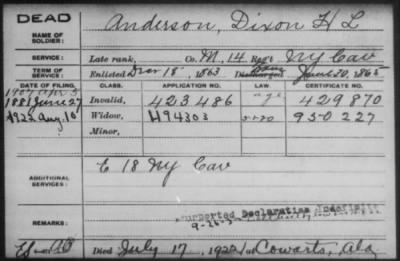 DEAD
NAME OF SOLDIER:
Anderson, Dixon H L
SERVICE:
Late rank, Co. M, 14 Reg't NY Cav
TERM OF SERVICE:
Enlisted Dec 18, 1863 Discharged June 20, 1865
DATE OF FILING. CLASS. APPLICATION NO. LAW. CERTIFICATE NO.
1907 Apr 5
1881 June 27 Invalid, 423486 age 429870
1922 Aug. 10 Widow, 1194303 5-1-20 930227
Minor,
ADDITIONAL SERVICES:
E 18 NY Cav
REMARKS:
Purported Declaration
Died July 17, 1922, at Cowarts, Ala